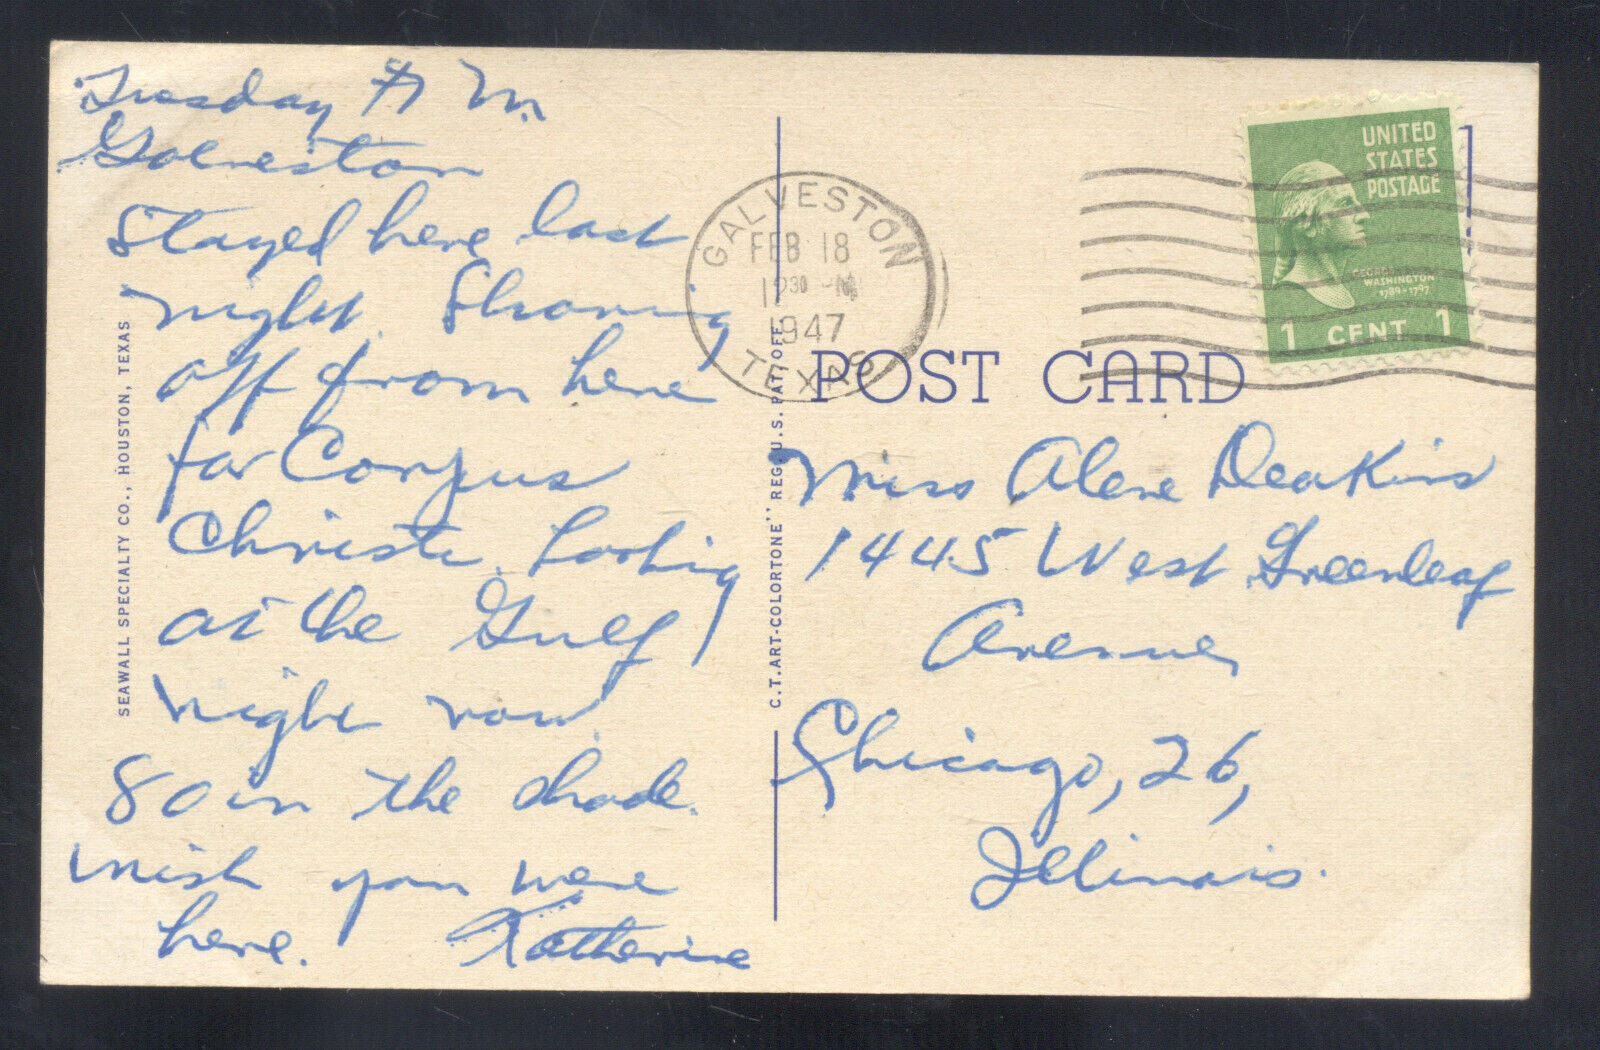 Tuesday A M.
Galveston
Stayed here last
night. Shoving
off from here
for Corpus
Christi. Looking
at the Gulf
right now.
80 in the shade.
Wish you were
here. Katherine
SEAWALL SPECIALTY CO., HOUSTON, TEXAS
C.T.ART-COLORTONE" REG. U.S. PAT. OFF.
GALVESTON
FEB 18
12 30 PM
1947
TEXAS
UNITED
STATES
POSTAGE
GEORGE
WASHINGTON
1789-1797
1 CENT 1
POST CARD
Miss Alene Deakins
1445 West Greenleaf
Avenue,
Chicago, 26,
Illinois.